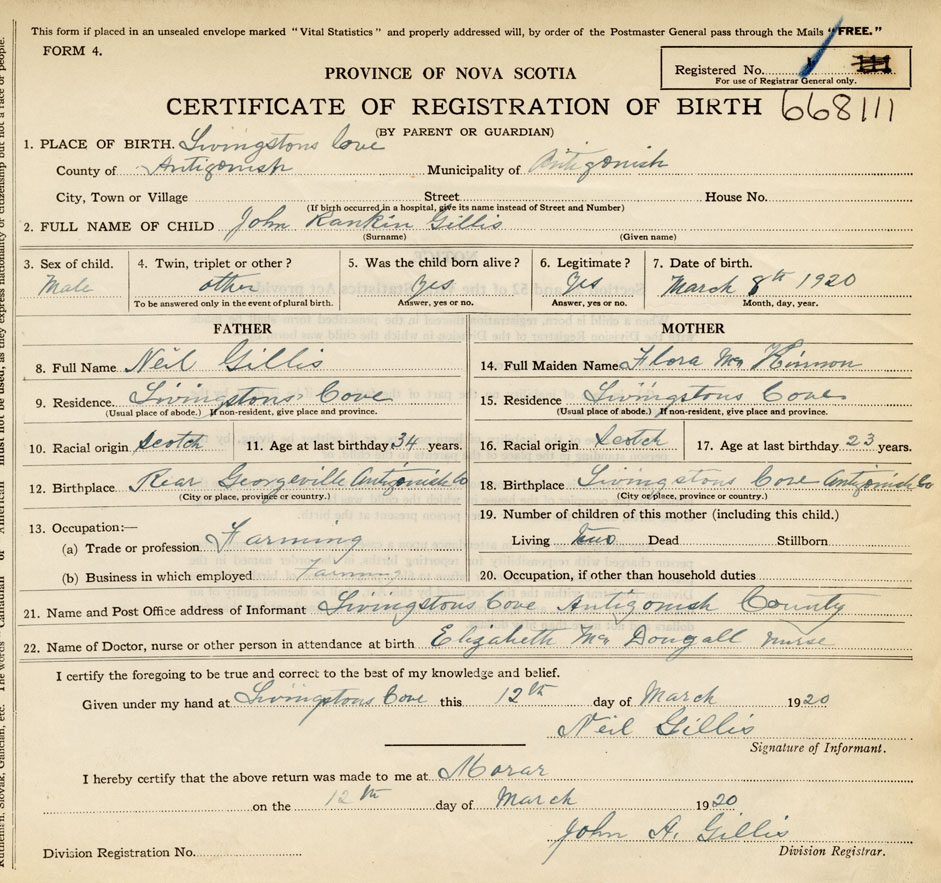 This form if placed in an unsealed envelope marked "Vital Statistics" and properly addressed will, by order of the Postmaster General pass through the Mails "FREE."
FORM 4.
Registered No.
111
For use of Registrar General only.
PROVINCE OF NOVA SCOTIA
CERTIFICATE OF REGISTRATION OF BIRTH 668111
(BY PARENT OR GUARDIAN)
1. PLACE OF BIRTH. Livingstons Cove
County of Antigonish Municipality of Antigonish
City, Town or Village Street House No.
(If birth occurred in a hospital, give its name instead of Street and Number)
2. FULL NAME OF CHILD John Rankin Gillis
(Surname) (Given name)
3. Sex of child. 4. Twin, triplet or other? 5. Was the child born alive? 6. Legitimate? 7. Date of birth.
Male other Yes Yes March 8th 1920
To be answered only in the event of plural birth. Answer, yes or no. Answer, yes or no. Month, day, year.
FATHER MOTHER
8. Full Name Neil Gillis 14. Full Maiden Name Flora Mc Kinnon
9. Residence. Livingstons Cove 15. Residence Livingstons Cove
(Usual place of abode.) If non-resident, give place and province. (Usual place of abode.) If non-resident, give place and province.
10. Racial origin Scotch 11. Age at last birthday 34 years. 16. Racial origin Scotch 17. Age at last birthday 23 years.
12. Birthplace Rear Georgeville Antigonish Co 18. Birthplace Livingstons Cove Antigonish Co
(City or place, province or country.) (City or place, province or country.)
13. Occupation:— 19. Number of children of this mother (including this child.)
(a) Trade or profession Farming Living two Dead Stillborn
(b) Business in which employed Farming 20. Occupation, if other than household duties
21. Name and Post Office address of Informant Livingstons Cove Antigonish County
22. Name of Doctor, nurse or other person in attendance at birth Elizabeth Mc Dougall nurse
I certify the foregoing to be true and correct to the best of my knowledge and belief.
Given under my hand at Livingstons Cove this 12th day of March 1920
Neil Gillis
Signature of Informant.
I hereby certify that the above return was made to me at Morar
on the 12th day of March 1920
John A. Gillis
Division Registration No. Division Registrar.